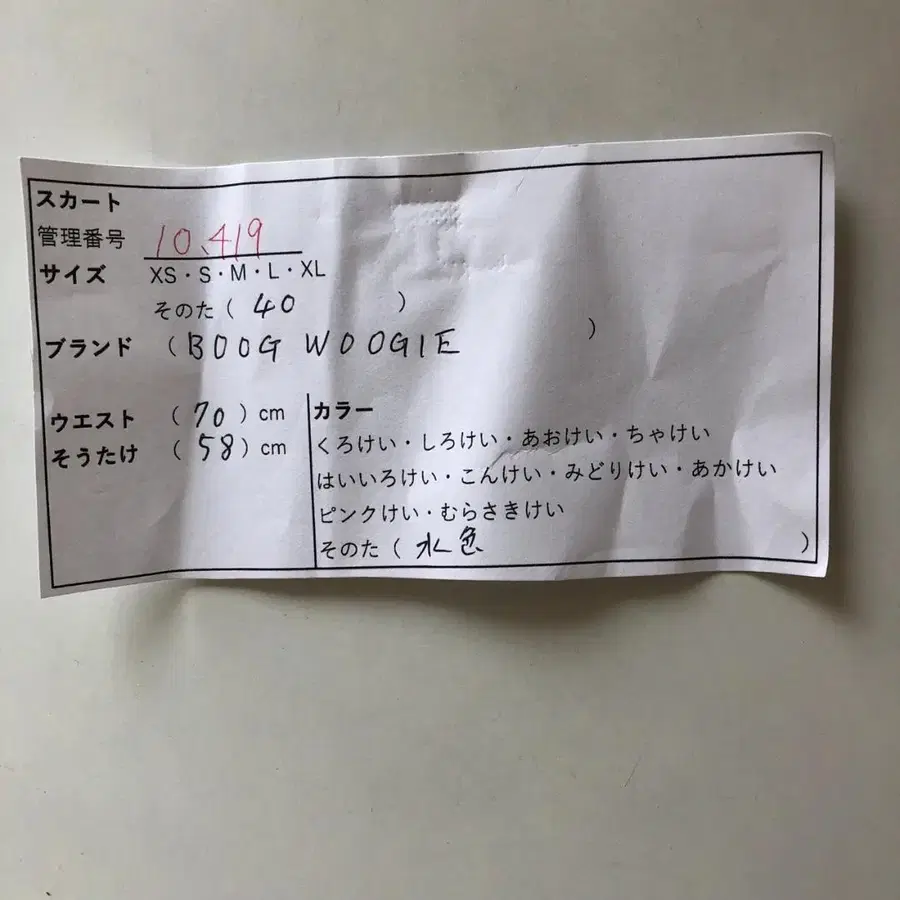 スカート
管理番号 10,419
サイズ XS・S・M・L・XL
そのた（ 40 ）
ブランド （ BOOG WOOGIE ）
ウエスト （ 70 ）cm
そうたけ （ 58 ）cm
カラー
くろけい・しろけい・あおけい・ちゃけい
はいいろけい・こんけい・みどりけい・あかけい
ピンクけい・むらさきけい
そのた（ 水色 ）